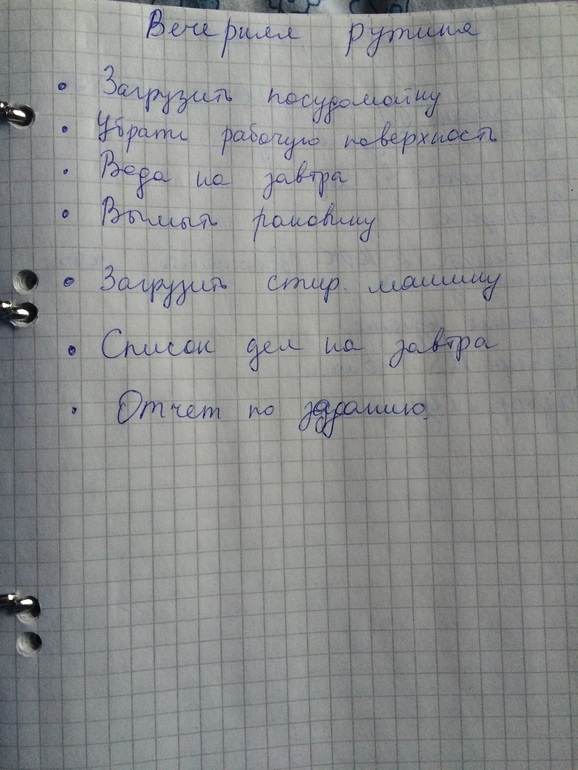 Вечерняя рутина
• Загрузить посудомойку
• Убрать рабочую поверхность
• Вода на завтра
• Вымыть раковину
• Загрузить стир. машину
• Список дел на завтра
• Отчет по заданию.